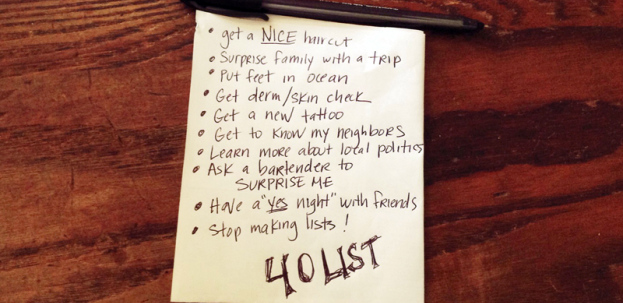 • get a NICE haircut
• Surprise family with a trip
• Put feet in ocean
• Get derm/skin check
• Get a new tattoo
• Get to know my neighbors
• Learn more about local politics
• Ask a bartender to
SURPRISE ME
• Have a "yes night" with friends
• Stop making lists!
40 LIST